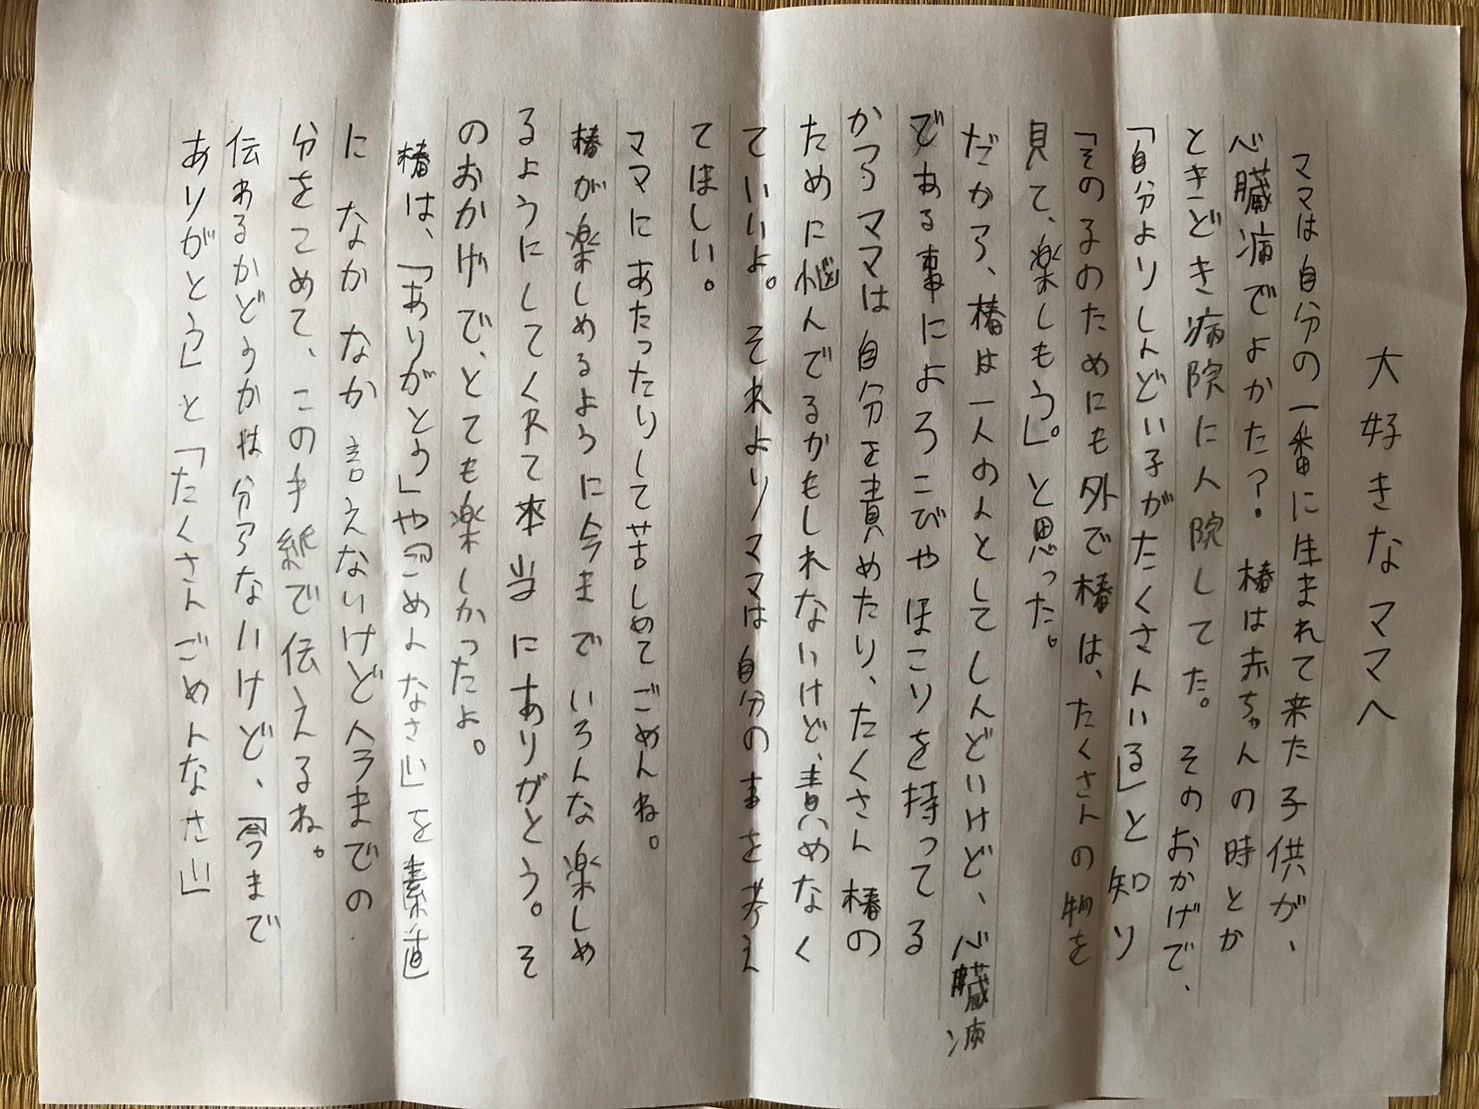 大好きなママへ
ママは自分の一番に生まれて来た子供が、
心臓病でよかた？椿は赤ちゃんの時とか
ときどき病院に入院してた。そのおかげで、
「自分よりしんどい子がたくさんいる」と知り
「その子のためにも外で椿は、たくさんの物を
見て、楽しもう。」と思った。
だから、椿は一人の人としてしんどいけど、心臓病
である事によろこびやほこりを持ってる
からママは自分を責めたり、たくさん椿の
ために悩んでるかもしれないけど、責めなく
ていいよ。それよりママは自分の事を考え
てほしい。
ママにあたったりして苦しめてごめんね。
椿が楽しめるように今までいろんな楽しめ
るようにしてくれて本当にありがとう。そ
のおかげで、とても楽しかったよ。
椿は、「ありがとう」や「ごめんなさい」を素直
になかなか言えないけど今までの
分をこめて、この手紙で伝えるね。
伝わるかどうかは分らないけど、今まで
ありがとう」と「たくさんごめんなさい」